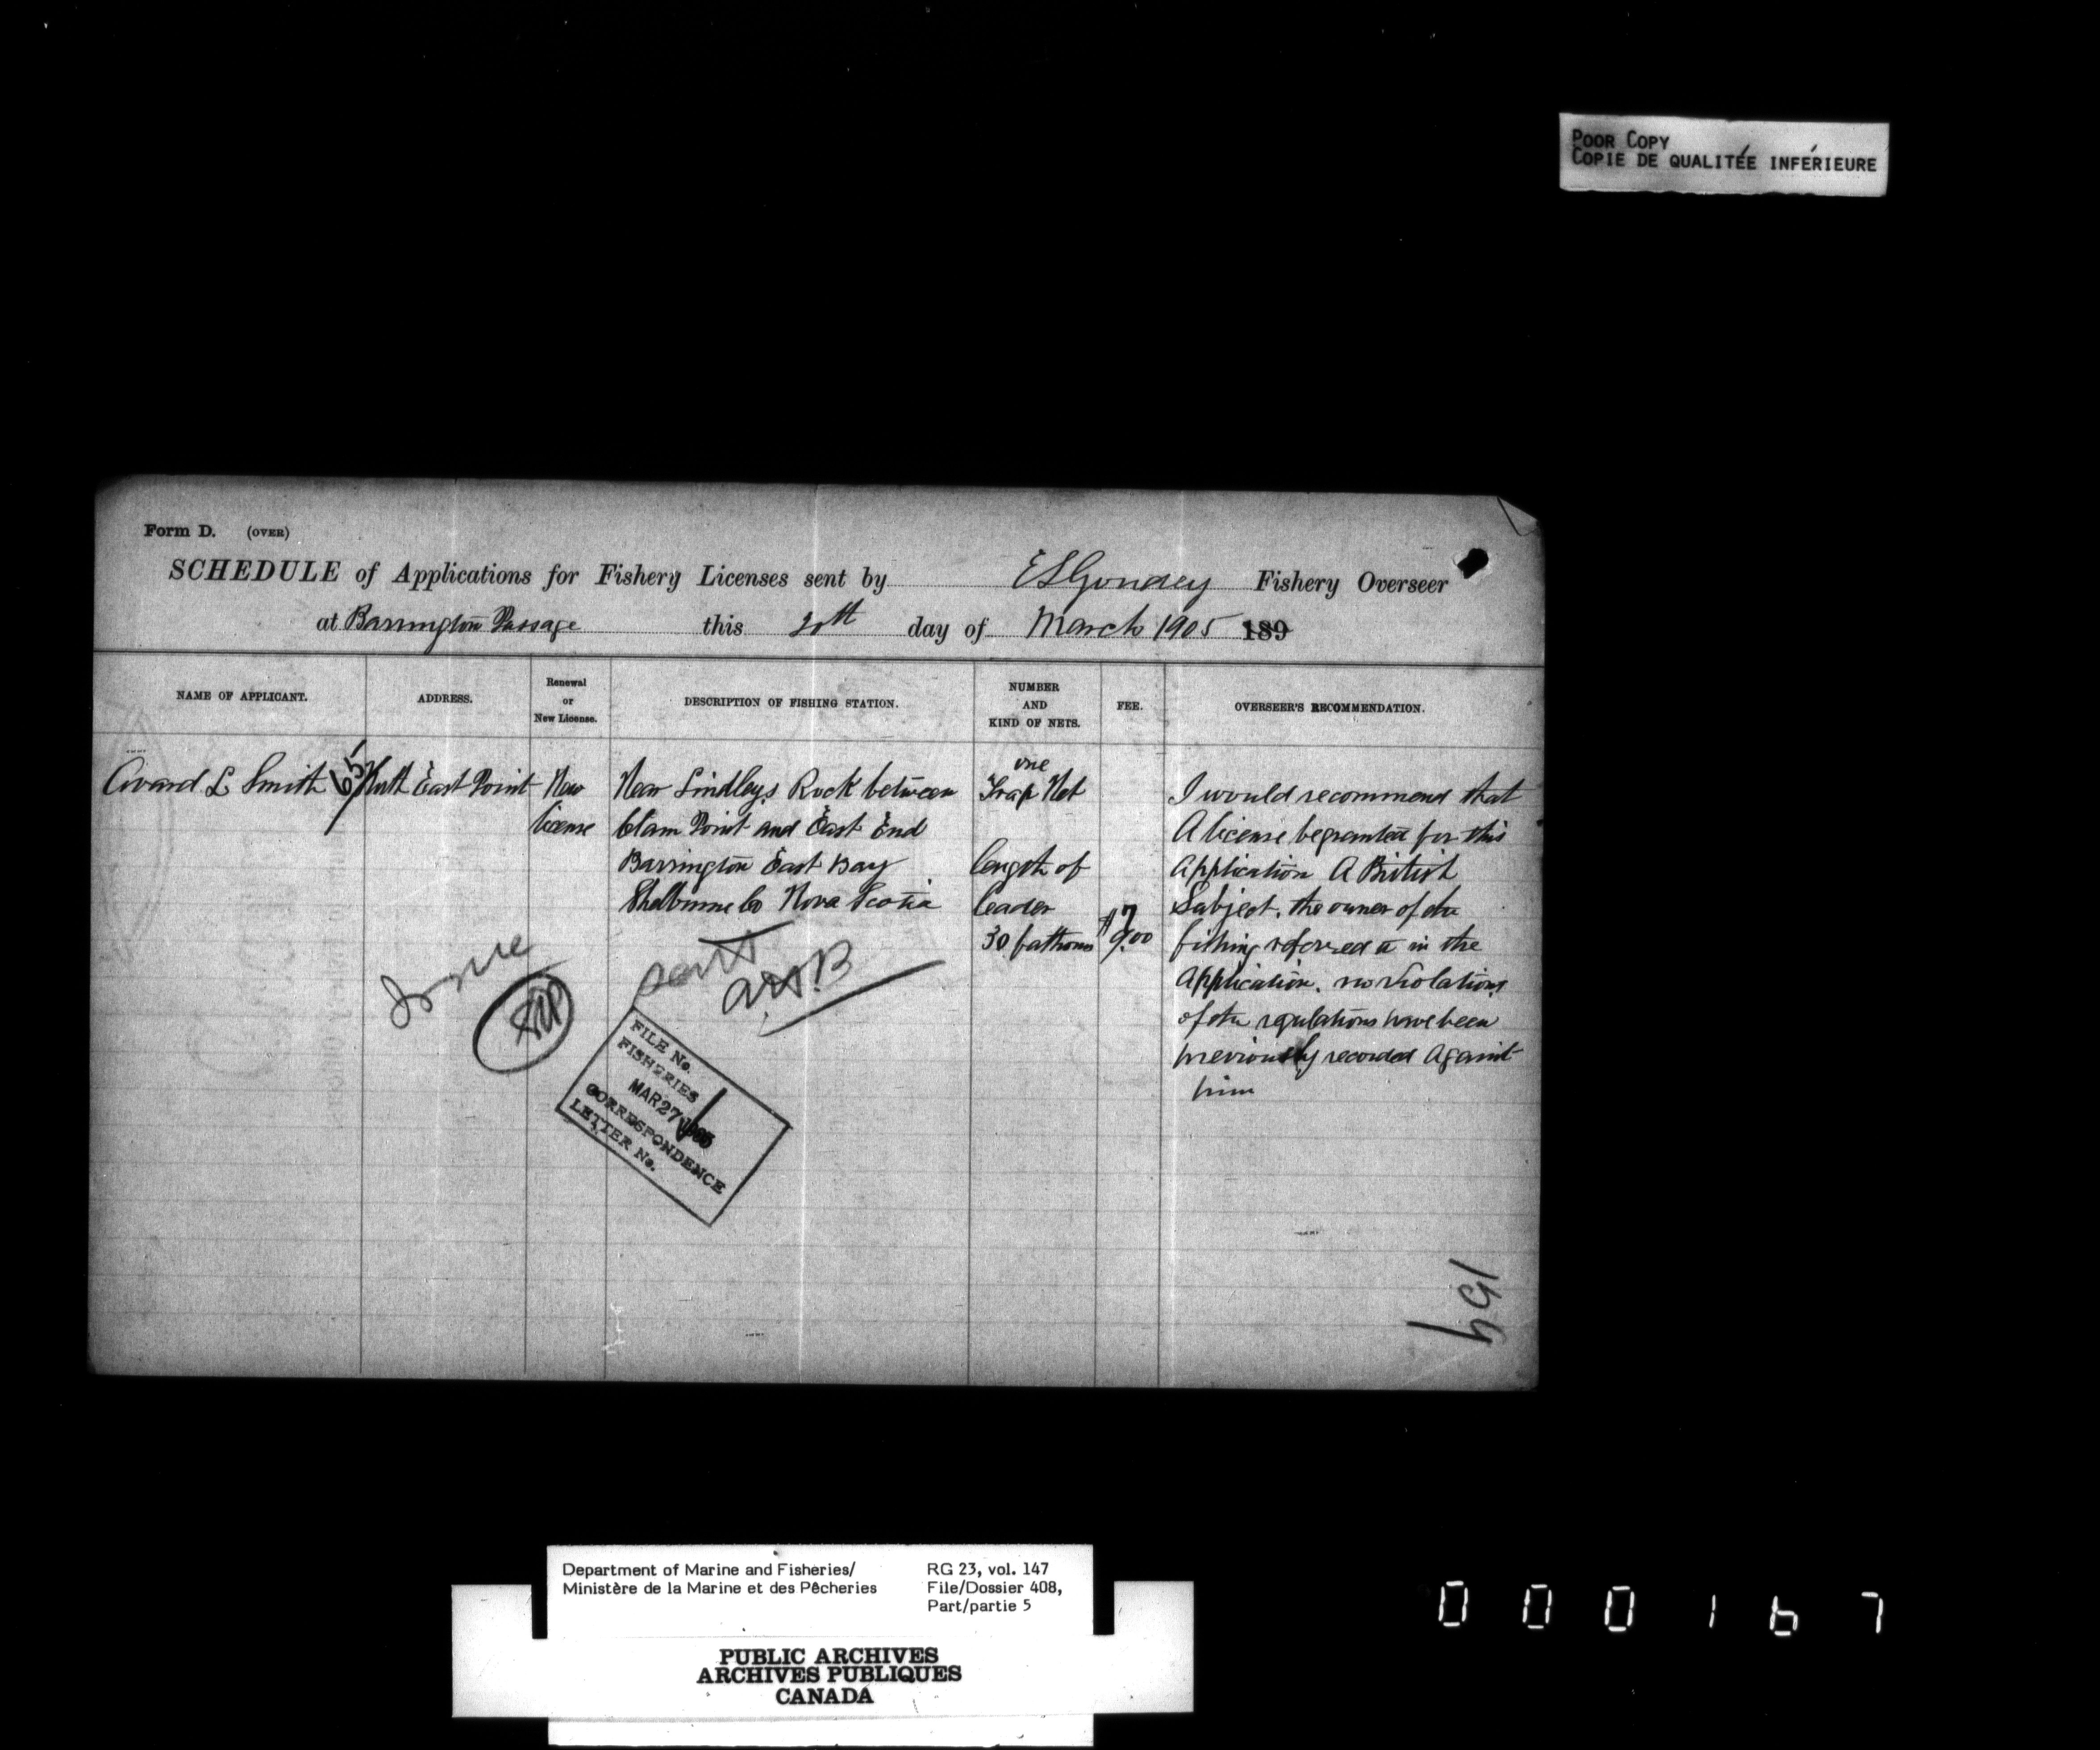 POOR COPY
COPIE DE QUALITÉE INFÉRIEURE
Form D. (OVER)
SCHEDULE of Applications for Fishery Licenses sent by E S Goudey Fishery Overseer
at Barrington Passage this 20th day of March 1905 189
NAME OF APPLICANT.
ADDRESS.
Renewal
or
New License.
DESCRIPTION OF FISHING STATION.
NUMBER
AND
KIND OF NETS.
FEE.
OVERSEER'S RECOMMENDATION.
Avard L Smith
65
East Point
New
license
Near Lindleys Rock between
Clam Point and East End
Barrington East Bay
Shelburne Co Nova Scotia
one
Trap Net
length of
leader
30 fathoms
$9.00
7
I would recommend that
A license be granted for this
Application A British
Subject. the owner of the
fishing referred to in the
Application. no violations
of the regulations have been
previously recorded Against
him
Issue
sent
FILE No.
FISHERIES
MAR 27 1905
CORRESPONDENCE
LETTER No.
154
Department of Marine and Fisheries/
Ministère de la Marine et des Pêcheries
RG 23, vol. 147
File/Dossier 408,
Part/partie 5
PUBLIC ARCHIVES
ARCHIVES PUBLIQUES
CANADA
000167